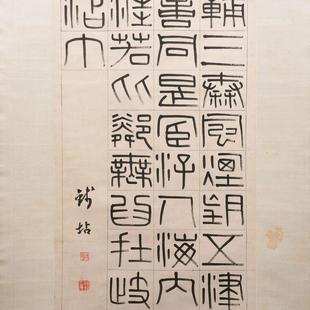 輔三秦風煙望五津
意同是宦游人海内
涯若比鄰無為在岐
沾巾
錢坫